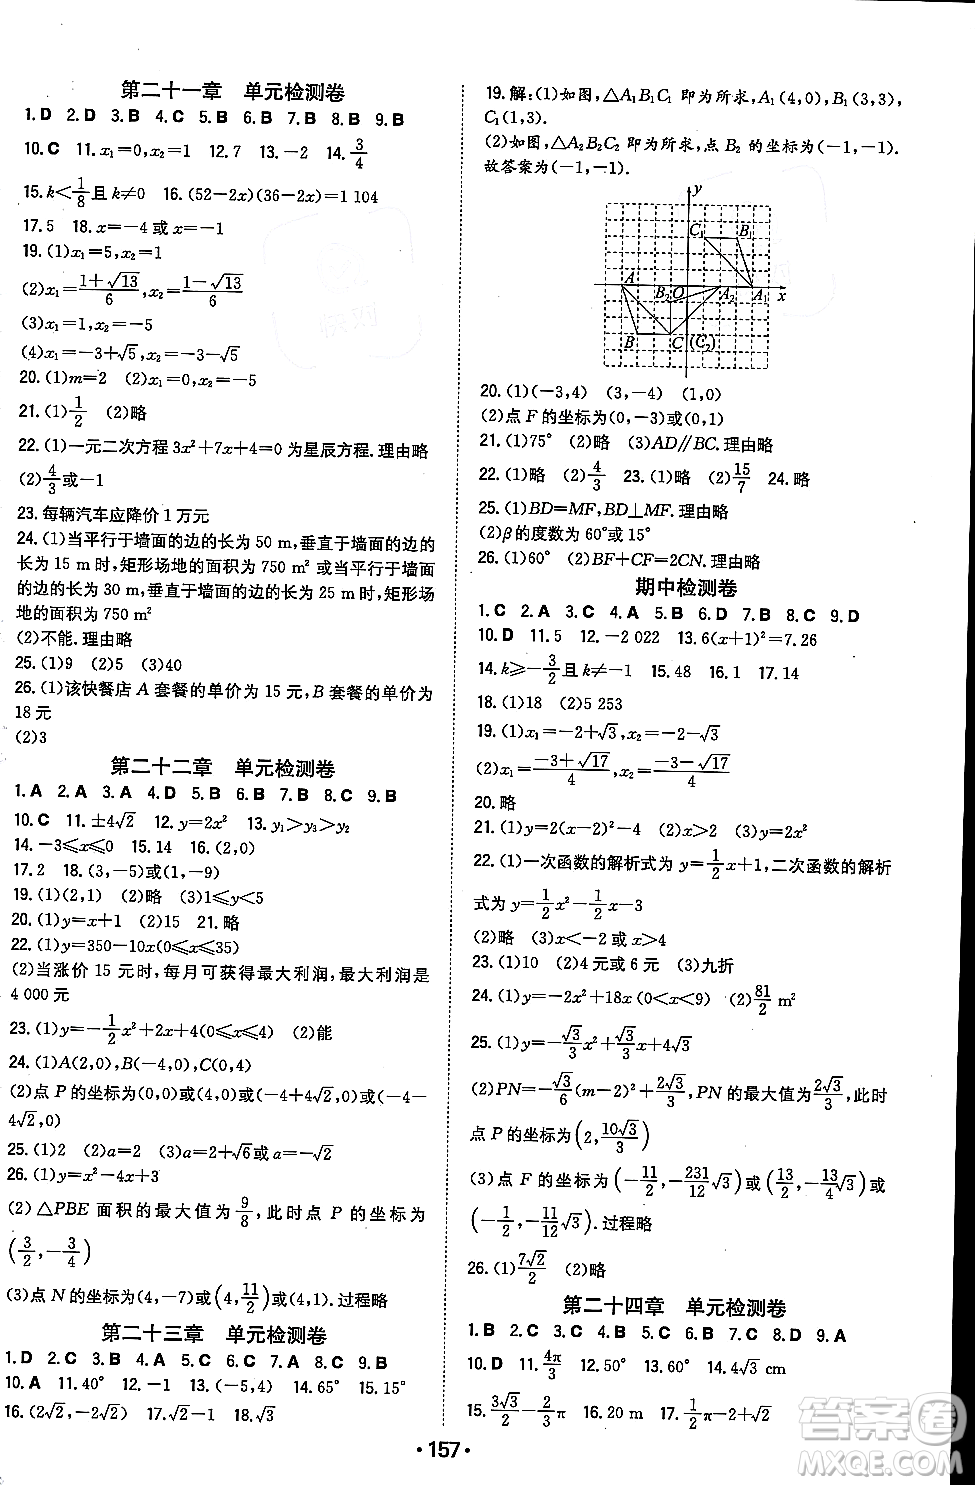 第二十一章　单元检测卷
1.D　2.D　3.B　4.C　5.B　6.B　7.B　8.B　9.B
10.C　11.x₁=0,x₂=1　12.7　13.-2　14.3/4
15.k<1/8且k≠0　16.(52-2x)(36-2x)=1 104
17.5　18.x=-4或x=-1
19.(1)x₁=5,x₂=1
(2)x₁=(1+√13)/6,x₂=(1-√13)/6
(3)x₁=1,x₂=-5
(4)x₁=-3+√5,x₂=-3-√5
20.(1)m=2　(2)x₁=0,x₂=-5
21.(1)1/2　(2)略
22.(1)一元二次方程 3x²+7x+4=0 为星辰方程.理由略
(2)4/3或-1
23.每辆汽车应降价 1 万元
24.(1)当平行于墙面的边的长为 50 m,垂直于墙面的边的长为
15 m 时,矩形场地的面积为 750 m² 或当平行于墙面的边的长为
30 m,垂直于墙面的边的长为 25 m 时,矩形场地的面积为 750 m²
(2)不能.理由略
25.(1)9　(2)5　(3)40
26.(1)该快餐店 A 套餐的单价为 15 元,B 套餐的单价为
18 元
(2)3
第二十二章　单元检测卷
1.A　2.A　3.A　4.D　5.B　6.B　7.B　8.C　9.B
10.C　11.±4√2　12.y=2x²　13.y₁>y₃>y₂
14.-3⩽x⩽0　15.14　16.(2,0)
17.2　18.(3,-5)或(1,-9)
19.(1)(2,1)　(2)略　(3)1⩽y<5
20.(1)y=x+1　(2)15　21.略
22.(1)y=350-10x(0⩽x⩽35)
(2)当涨价 15 元时,每月可获得最大利润,最大利润是
4 000 元
23.(1)y=-1/2x²+2x+4(0⩽x⩽4)　(2)能
24.(1)A(2,0),B(-4,0),C(0,4)
(2)点 P 的坐标为(0,0)或(4,0)或(-4+4√2,0)或(-4-
4√2,0)
25.(1)2　(2)a=2　(3)a=2+√6或a=-√2
26.(1)y=x²-4x+3
(2)△PBE 面积的最大值为9/8,此时点 P 的坐标为
(3/2,-3/4)
(3)点 N 的坐标为(4,-7)或(4,11/2)或(4,1).过程略
第二十三章　单元检测卷
1.D　2.C　3.B　4.B　5.D　6.B　7.A　8.C　9.B
10.A　11.40°　12.-1　13.(-5,4)　14.65°　15.15°
16.(2√2,-2√2)　17.√2-1　18.√3
19.解:(1)如图,△A₁B₁C₁ 即为所求,A₁(4,0),B₁(3,3),
C₁(1,3).
(2)如图,△A₂B₂C₂ 即为所求,点 B₂ 的坐标为(-1,-1).
故答案为(-1,-1).
y
C₁ B₁
A B₂ O A₂ A₁ x
B C (C₂)
20.(1)(-3,4)　(3,-4)　(1,0)
(2)点 F 的坐标为(0,-3)或(0,1)
21.(1)75°　(2)略　(3)AD∥BC.理由略
22.(1)略　(2)4/3　23.(1)略　(2)15/7　24.略
25.(1)BD=MF,BD⊥MF.理由略
(2)β的度数为 60°或 15°
26.(1)60°　(2)BF+CF=2CN.理由略
期中检测卷
1.C　2.A　3.C　4.A　5.B　6.D　7.B　8.C　9.D
10.D　11.5　12.-2 022　13.6(x+1)²=7.26
14.k⩾-3/2且k≠-1　15.48　16.1　17.14
18.(1)18　(2)5 253
19.(1)x₁=-2+√3,x₂=-2-√3
(2)x₁=(-3+√17)/4,x₂=(-3-√17)/4
20.略
21.(1)y=2(x-2)²-4　(2)x>2　(3)y=2x²
22.(1)一次函数的解析式为 y=1/2x+1,二次函数的解析
式为 y=1/2x²-1/2x-3
(2)略　(3)x<-2 或 x>4
23.(1)10　(2)4元或6元　(3)九折
24.(1)y=-2x²+18x(0<x<9)　(2)81/2 m²
25.(1)y=-√3/3x²+√3/3x+4√3
(2)PN=-√3/6(m-2)²+2√3/3,PN 的最大值为2√3/3,此时
点 P 的坐标为(2,10√3/3)
(3)点 F 的坐标为(-11/2,-231/12√3)或(13/2,-13/4√3)或
(-1/2,-11/12√3).过程略
26.(1)7√2/2　(2)略
第二十四章　单元检测卷
1.B　2.C　3.C　4.B　5.D　6.B　7.B　8.D　9.A
10.D　11.4π/3　12.50°　13.40°　14.4√3 cm
15.3√3/2-2/3π　16.20 m　17.1/2π-2+√2
·157·
答案圈
MXQE.COM